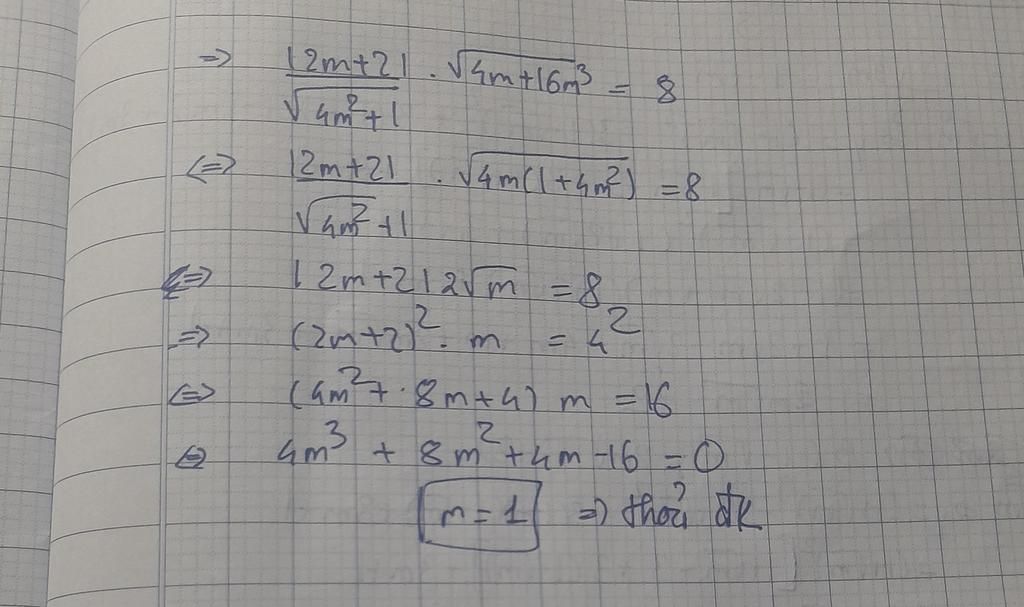 => |2m+2| / √(4m²+1) . √(4m+16m³) = 8
<=> |2m+2| / √(4m²+1) . √(4m(1+4m²)) = 8
<=> |2m+2| 2√m = 8
=> (2m+2)² . m = 4²
<=> (4m² + 8m+4) m = 16
<=> 4m³ + 8m² + 4m - 16 = 0
m = 1 => thoả đk